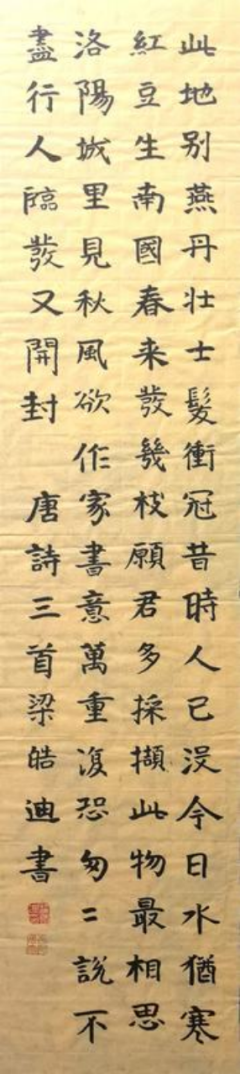 此地别燕丹壮士髮衝冠昔時人已没今日水猶寒
紅豆生南國春来發幾枝願君多採擷此物最相思
洛陽城里見秋風欲作家書意萬重復恐匆〻說不
盡行人臨發又開封 唐詩三首梁皓迪書